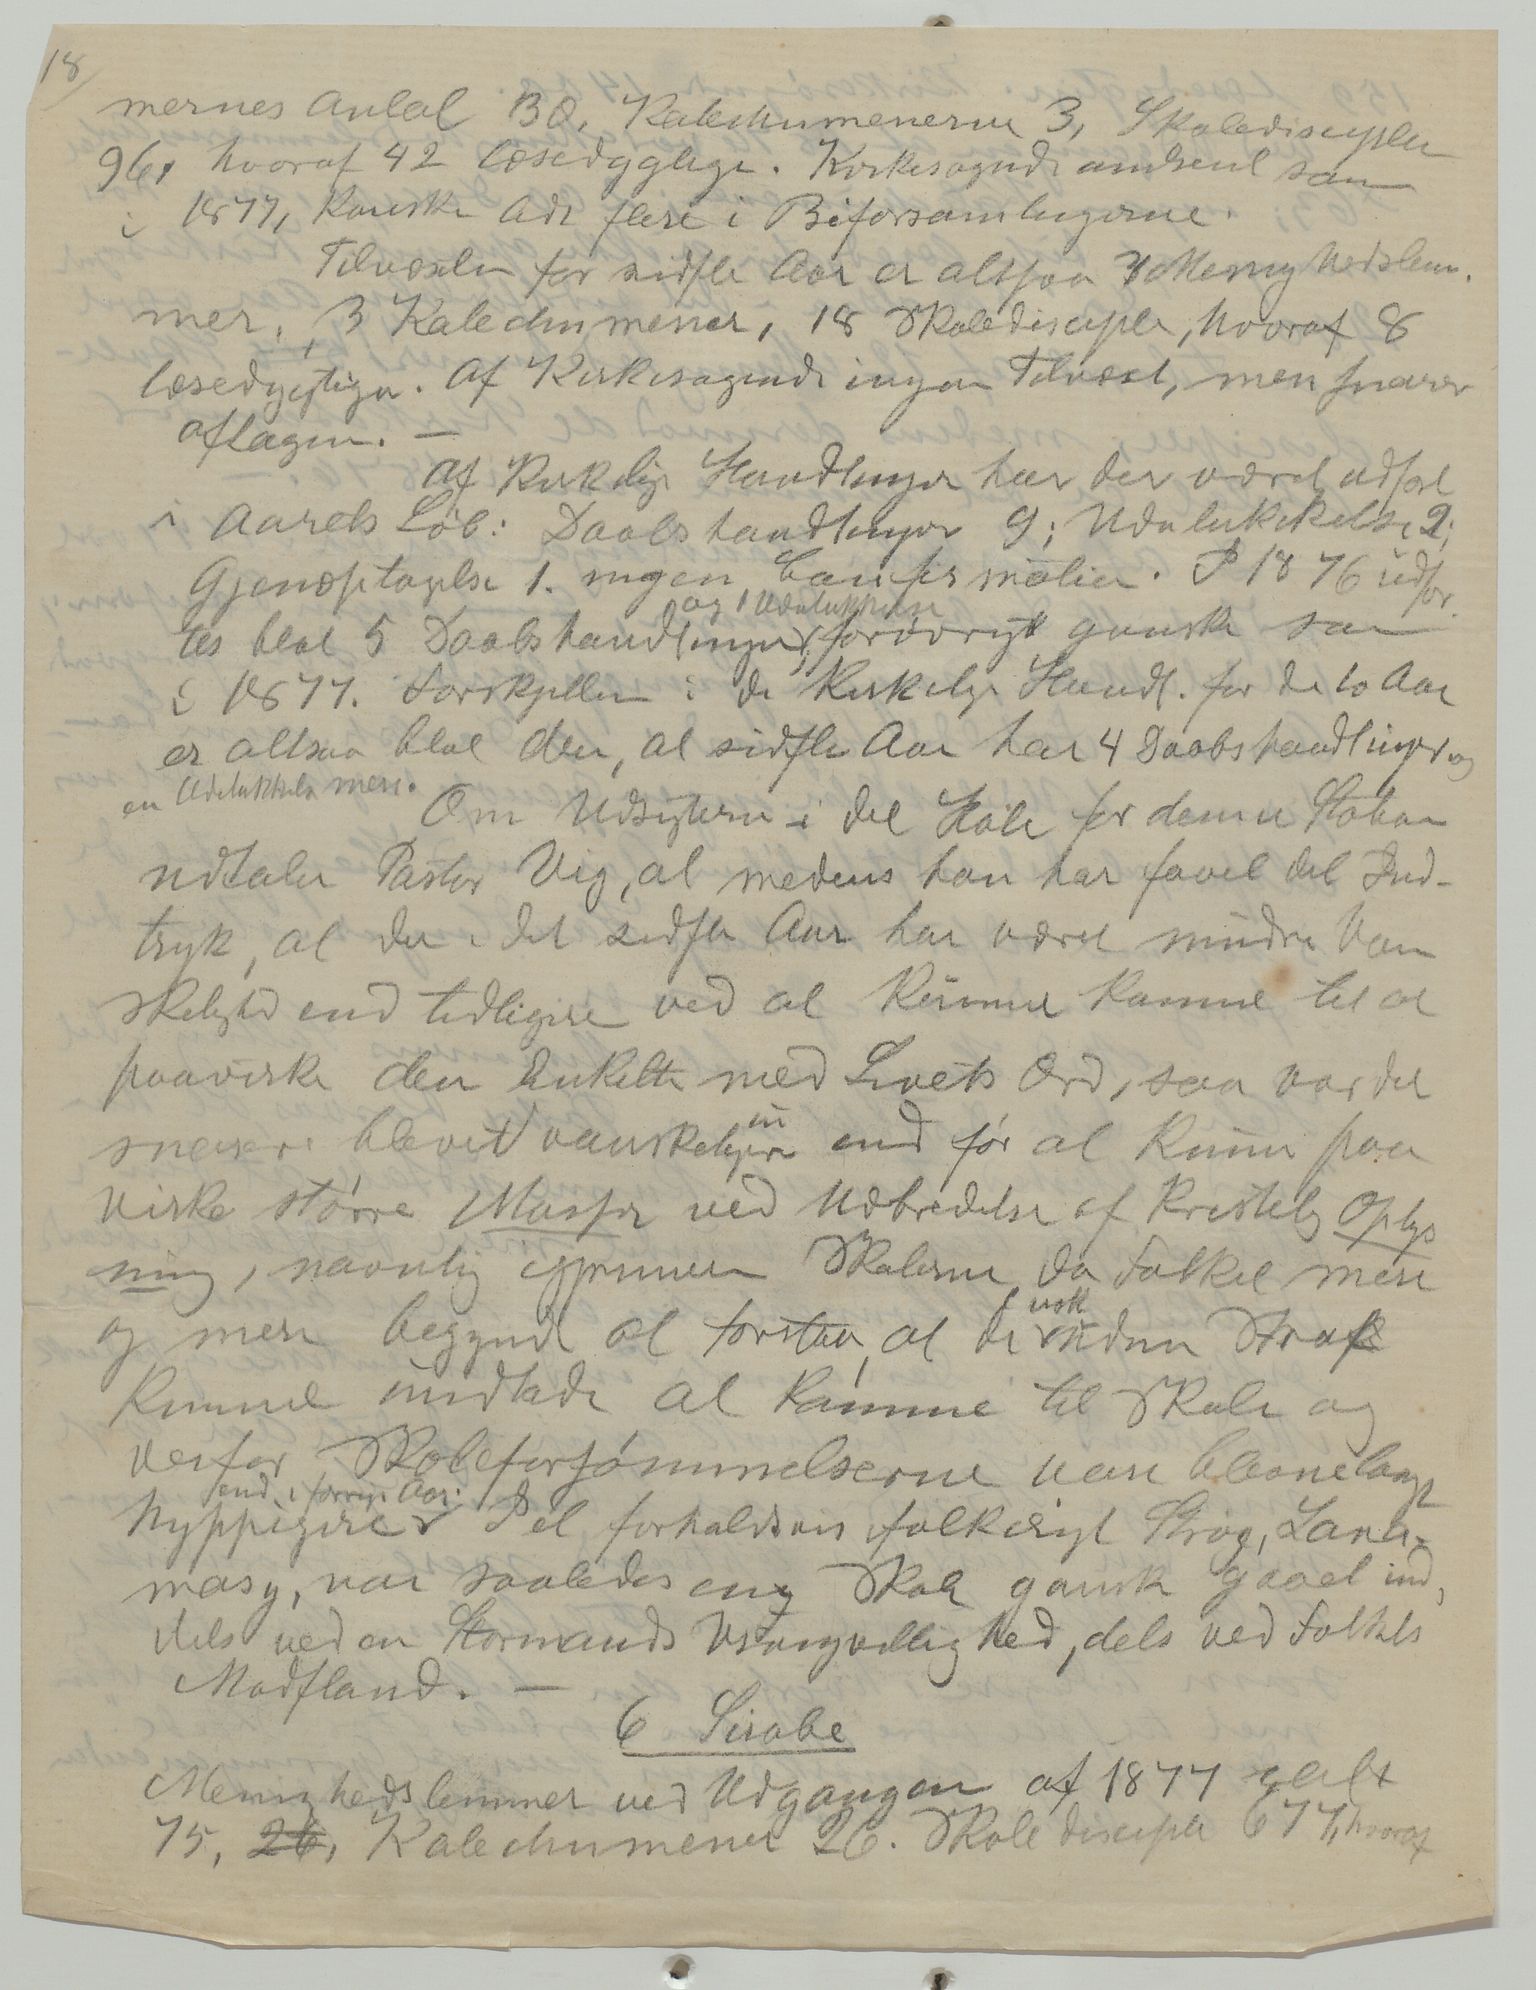 18/
mernes Antal 30, Katechumenerne 3, Skoledisciple
96, hvoraf 42 læsedygtige. Kirkesøgende omtrent som
i 1877, kanske lidt flere i Biforsamlingerne.
Tilvæxten for sidste Aar er altsaa 7 Menighedslem-
mer, 3 Katechumener, 18 Skoledisciple, hvoraf 8
læsedygtige. Af Kirkesøgende ingen Tilvæxt, men snarere
aftagen. —
Af Kirkelige Handlinger har der været udført
i Aarets Løb: Daabshandlinger 9; Udelukkelse 2;
Gjenoptagelse 1. ingen Confirmation. I 1876 udfør-
og 1 Udelukkelse
tes blot 5 Daabshandlinger, forøvrigt ganske som
i 1877. Forskjellen i de Kirkelige Handl. for de to Aar
er altsaa blot den, at sidste Aar har 4 Daabshandlinger og
en Udelukkelse mere.
Om Udsigterne i det Hele for denne Station
udtaler Pastor Vig, at medens han har faaet det Ind-
tryk, at der i det sidste Aar har været mindre Van
skelighed end tidligere ved at kunne komme til at
paavirke den Enkelte med Livets Ord, saa var det
snarere blevet vanskeligere
nu
end før at kunne paa
virke større Masser ved Udbredelse af Kristelig Oplys
ning, navnlig igjennem Skolerne, da Folket mere
og mere begyndte at forstaa, at de
nok
uden Straf
kunne undlade at komme til Skole og
derfor Skoleforsømmelserne vare blevne langt
end i forrige Aar.
hyppigere I et forholdsvis folkerigt Strøg, Lana-
masy, var saaledes en Skole ganske gaaet ind,
dels ved en Stormands Vrangvillighed, dels ved Folkets
Modstand. —
6 Sirabe
Menighedslemmer ved Udgangen af 1877 talt
75, 26, Katechumener 26. Skoledisciple 677, hvoraf